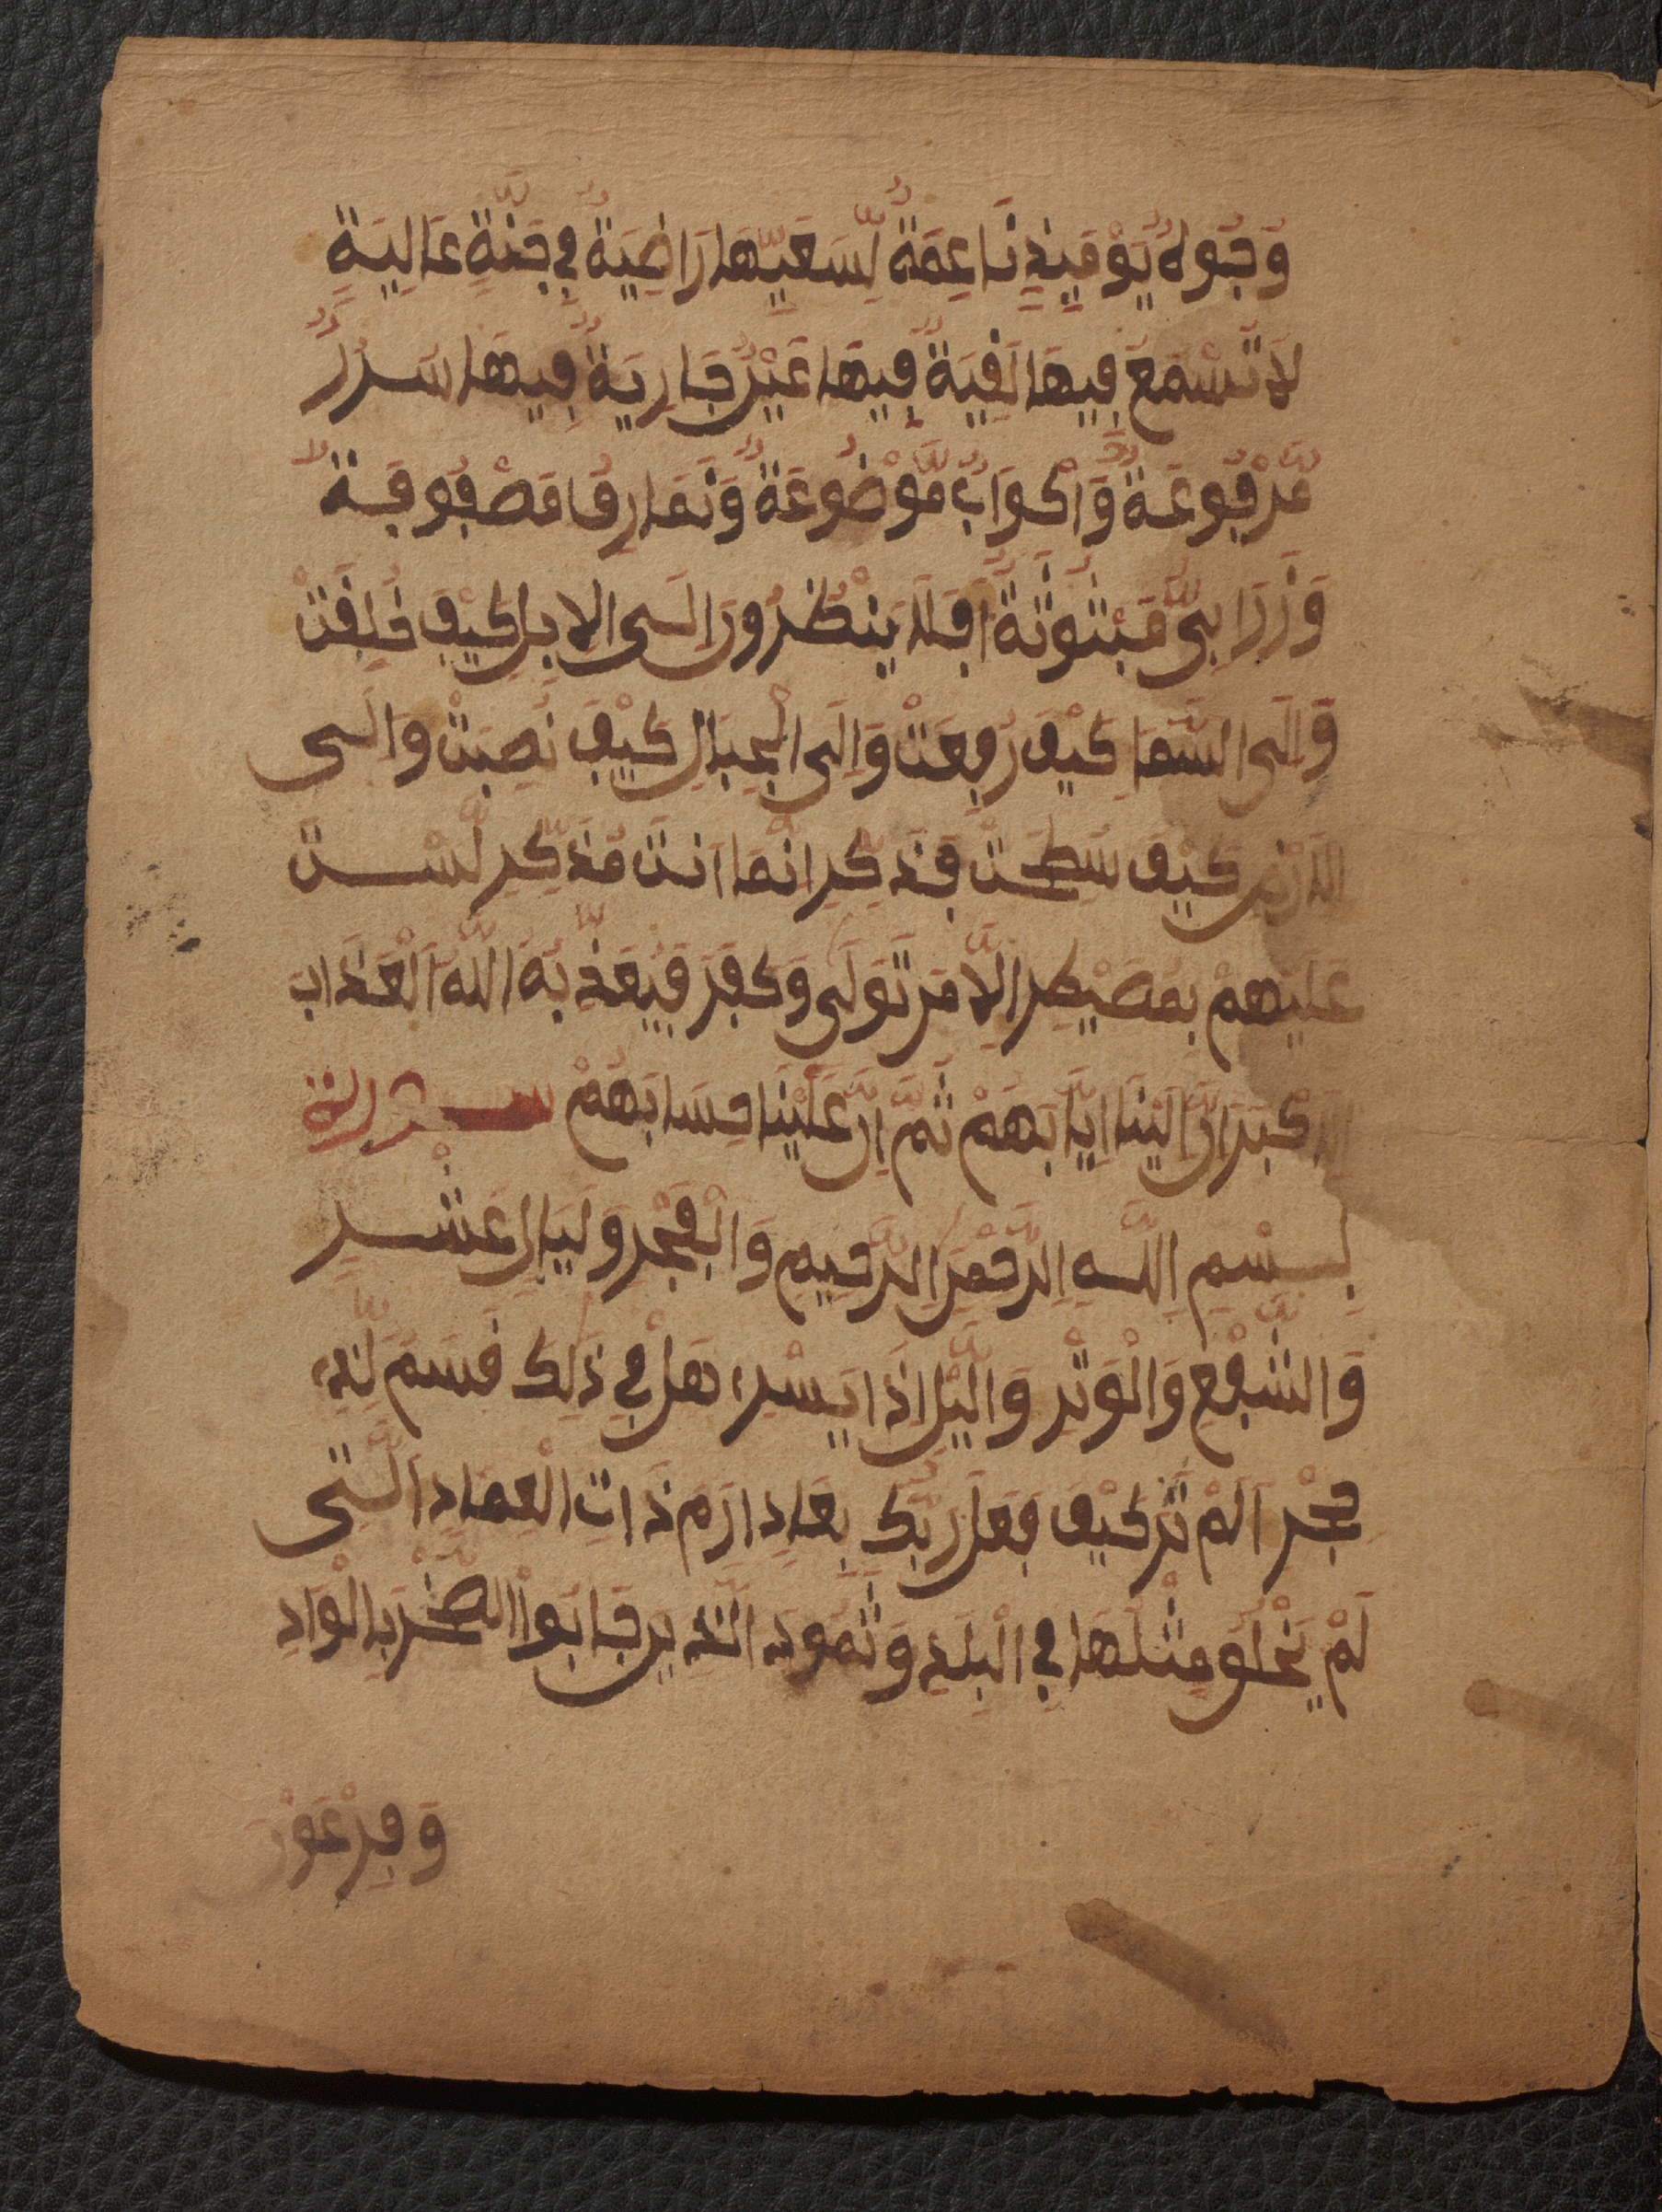 وُجُوهٌ يَوْمَئِذٍ نَّاعِمَةٌ لِّسَعْيِهَا رَاضِيَةٌ فِي جَنَّةٍ عَالِيَةٍ
لَا تَسْمَعُ فِيهَا لَغِيَةٌ فِيهَا عَيْنٌ جَارِيَةٌ فِيهَا سُرُرٌ
مَّرْفُوعَةٌ وَأَكْوَابٌ مَّوْضُوعَةٌ وَنَمَارِقُ مَصْفُوفَةٌ
وَزَرَابِىُّ مَبْثُوثَةٌ أَفَلَا يَنْظُرُونَ إِلَى الْإِبِلِ كَيْفَ خُلِقَتْ
وَإِلَى السَّمَاءِ كَيْفَ رُفِعَتْ وَإِلَى الْجِبَالِ كَيْفَ نُصِبَتْ وَإِلَى
الْأَرْضِ كَيْفَ سُطِحَتْ فَذَكِّرْ إِنَّمَا أَنْتَ مُذَكِّرٌ لَّسْتَ
عَلَيْهِمْ بِمُصَيْطِرٍ إِلَّا مَنْ تَوَلَّى وَكَفَرَ فَيُعَذِّبُهُ اللَّهُ الْعَذَابَ
الْأَكْبَرَ إِنَّ إِلَيْنَا إِيَابَهُمْ ثُمَّ إِنَّ عَلَيْنَا حِسَابَهُمْ
بِسْمِ اللَّهِ الرَّحْمَنِ الرَّحِيمِ وَالْفَجْرِ وَلَيَالٍ عَشْرٍ
وَالشَّفْعِ وَالْوَتْرِ وَالَّيْلِ إِذَا يَسْرِ هَلْ فِي ذَلِكَ قَسَمٌ لِّذِي
حِجْرٍ أَلَمْ تَرَ كَيْفَ فَعَلَ رَبُّكَ بِعَادٍ إِرَمَ ذَاتِ الْعِمَادِ الَّتِى
لَمْ يُخْلَقْ مِثْلُهَا فِي الْبِلَدِ وَثَمُودَ الَّذِينَ جَابُوا الصَّخْرَ بِالْوَادِ
وَفِرْعَوْنَ